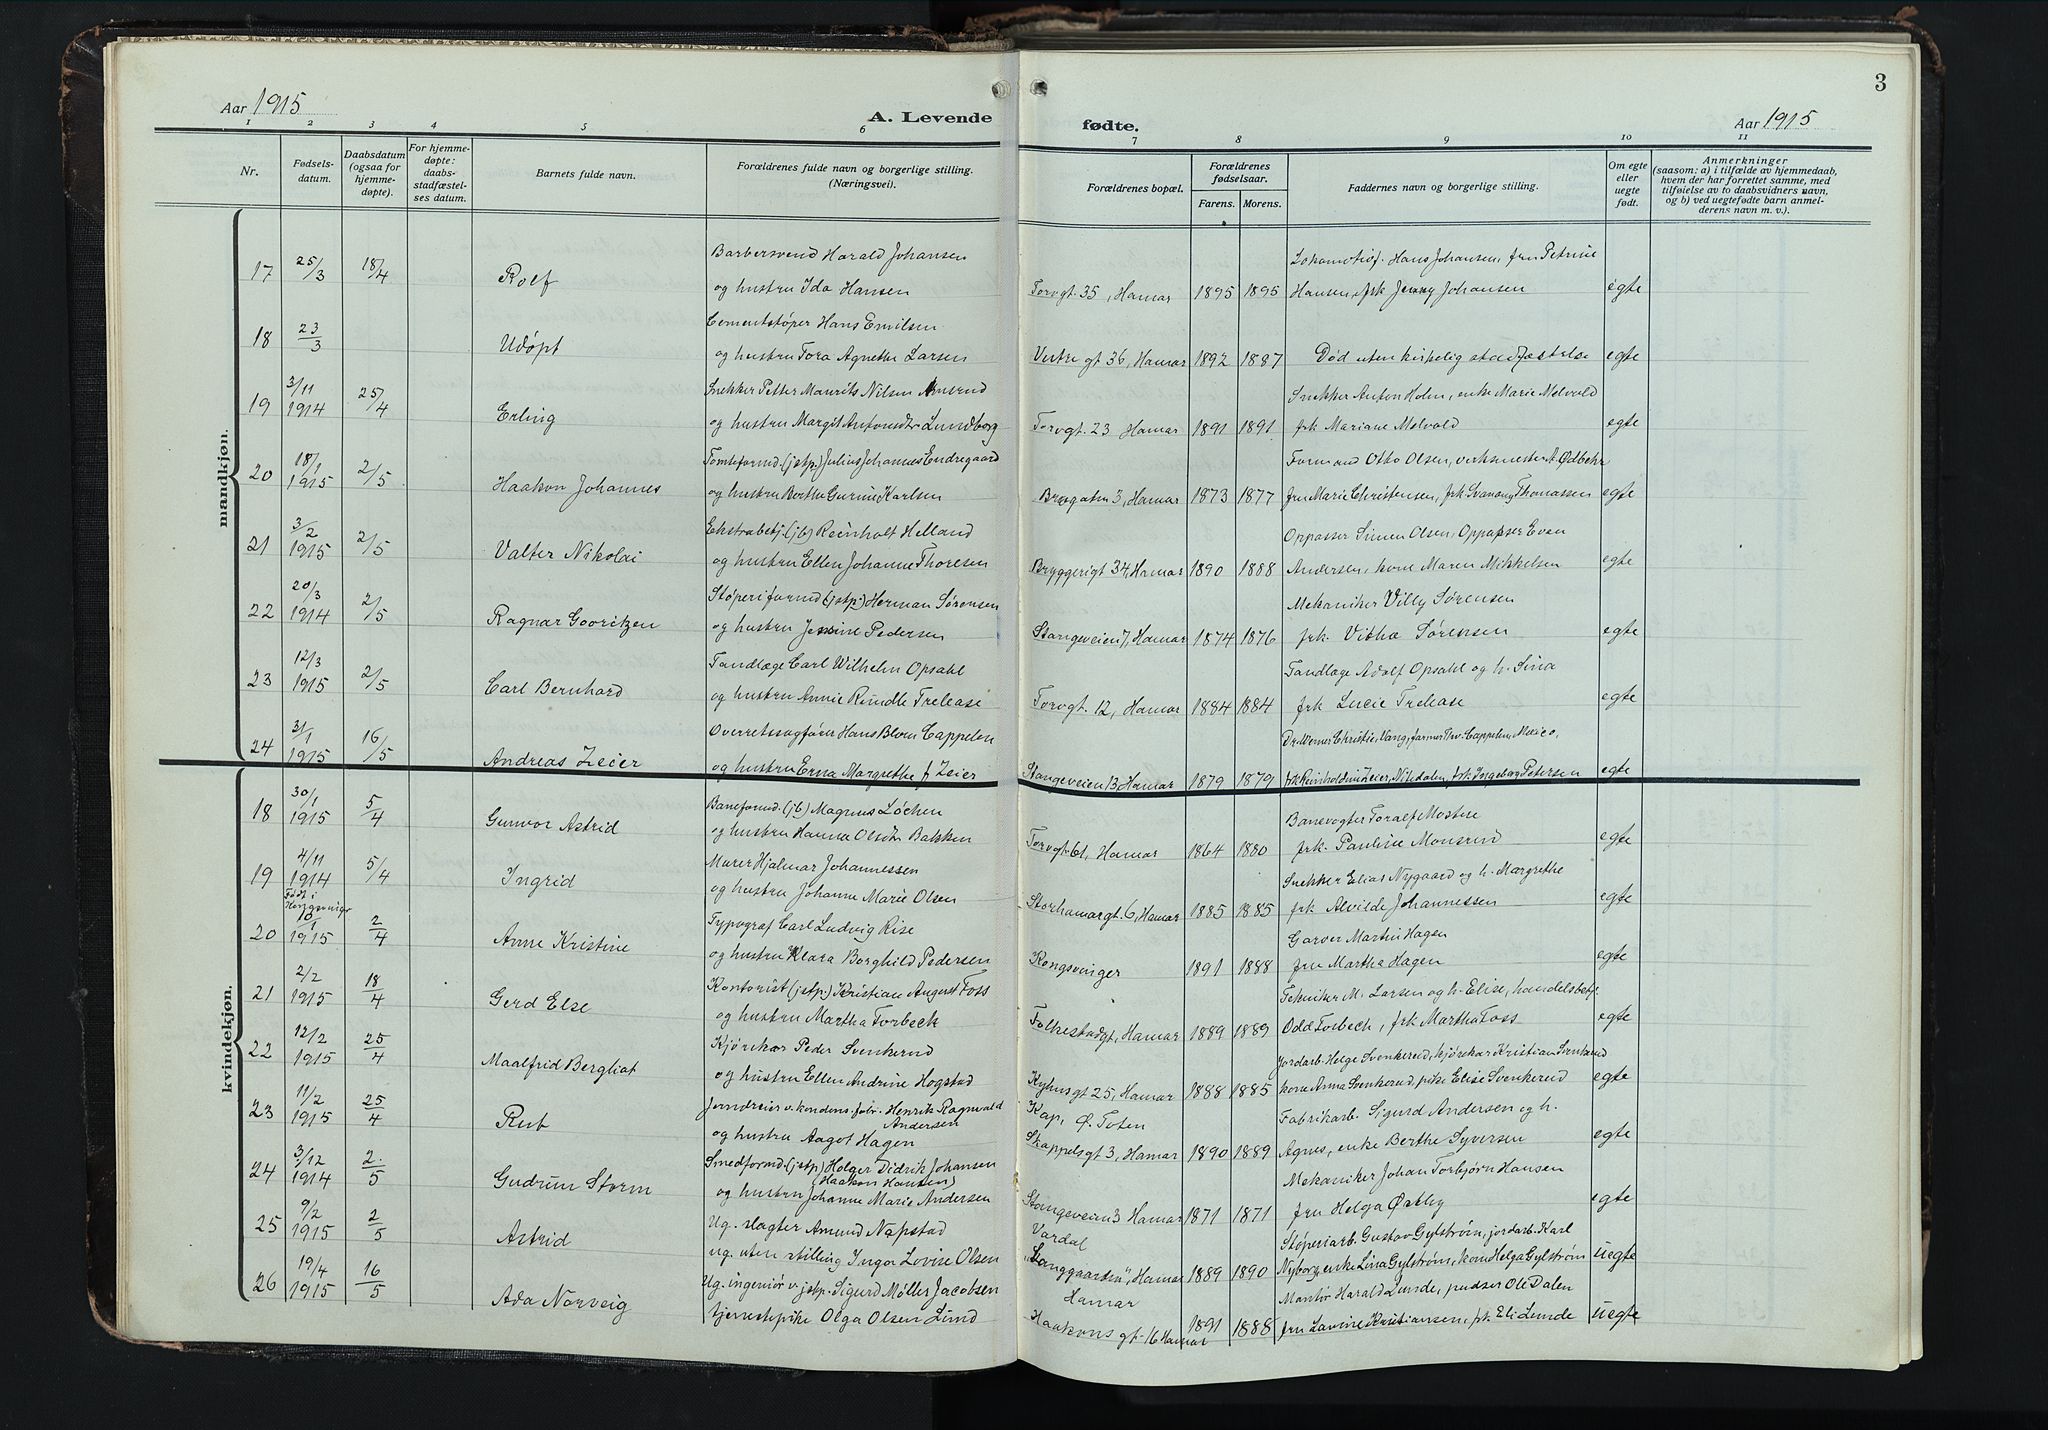 3
Aar 1915
A. Levende fødte.
Aar 1915
1 2 3 4 5 6 7 8 9 10 11
Nr.
Fødsels-
datum.
Daabsdatum
(ogsaa for
hjemme-
døpte).
For hjemme-
døpte:
daabs-
stadfæstel-
ses datum.
Barnets fulde navn.
Forældrenes fulde navn og borgerlige stilling.
(Næringsvei).
Forældrenes bopæl.
Forældrenes
fødselsaar.
Farens. Morens.
Faddernes navn og borgerlige stilling.
Om egte
eller
uegte
født.
Anmerkninger
(saasom: a) i tilfælde av hjemmedaab,
hvem der har forrettet samme, med
tilføielse av to daabsvidners navn,
og b) ved uegtefødte barn anmel-
derens navn m. v.).
mandkjøn.
Barbersvend Harald Johansen Lokomotivf. Hans Johansen, fru Petrine
17 25/3 18/4 Rolf og hustru Ida Hansen Torvgt. 35, Hamar 1895 1895 Hansen, frk Jenny Johansen egte
Cementstøper Hans Emilsen
18 23/3 Udøpt og hustru Tora Agnethe Larsen Vestre gt 36, Hamar 1892 1887 Død uten kirkelig stadfæstelse egte
Snekker Petter Maurits Nilsen Snekker Anton Holen, enke Marie Melvold
19 3/11 1914 25/4 Erling og hustru Margit Antonsdtr Lundborg Torvgt. 23 Hamar 1891 1891 frk Mariane Melvold egte
Tomteformd. (jstp.) Julius Johannes Endregaard Formand Otto Olsen, verksmester A. Ødbehr
20 18/1 1915 2/5 Haakon Johannes og hustru Berthe Gurine Karlsen 3, Hamar 1873 1877 fru Marie Christensen, frk Svanaug Thomassen egte
Ekstrabetj. (jb) Reinholt Helland Oppasser Simen Olsen, Oppasser Even
21 3/2 1915 2/5 Valter Nikolai og hustru Ellen Johanne Thoresen Bryggerigt 34, Hamar 1890 1888 Andersen, kone Maren Mikkelsen egte
Støperiformd (jstp.) Herman Sørensen Mekaniker Villy Sørensen
22 20/3 1914 2/5 Ragnar Gooritzen og hustru Jensine Pedersen Stangeveien 7, Hamar 1874 1876 frk. Vitha Sørensen egte
Tandlæge Carl Wilhelm Opsahl Tandlæge Adolf Opsahl og h. Sina
23 12/3 1915 2/5 Carl Bernhard og hustru Annie Rundle Trelease Torvgt. 12, Hamar 1884 1884 frk Lucie Trelease egte
Overretssagfører Hans Blom Cappelen Dr. Werner Christie, Vang, farmer Thv. Cappelen, Mexico,
24 31/1 1915 16/5 Andreas Zeier og hustru Erna Margrethe f. Zeier Stangeveien 13 Hamar 1879 1879 frk Reinholdine Zeier, Nitedalen, frk Ingeborg Petersen egte
kvindekjøn.
Baneformd. (jb) Magnus Løchen Banevogter Toralf Mostue
18 30/1 1915 5/4 Gunvor Astrid og hustru Hanna Olsdtr Bakken Torvgt. 61, Hamar 1864 1880 frk. Pauline Monsrud egte
Murer Hjalmar Johannessen Snekker Elias Nygaard og h. Margrethe
19 4/11 1914 5/4 Ingrid og hustru Johanne Marie Olsen Storhamargt. 6, Hamar 1885 1885 frk Alvilde Johannessen egte
Født i
Kongsvinger Typograf Carl Ludvig Rise Garver Martin Hagen
20 10/1 1915 2/4 Anne Kristine og hustru Klara Borghild Pedersen Kongsvinger 1891 1888 fru Martha Hagen egte
Kontorist (jstp.) Kristian August Foss Tekniker M. Larsen og h. Elise, handelsbetj.
21 2/2 1915 18/4 Gerd Else og hustru Martha Torbeck Folkestadgt, Hamar 1889 1889 Odd Torbeck, frk Martha Foss egte
Kjørekar Peder Svenkerud Jordarb. Helge Svenkerud, kjørekar Kristian Svenkerud
22 12/2 1915 25/4 Maalfrid Bergliot og hustru Ellen Andrine Hogstad Kyhusgt 25, Hamar 1888 1885 kone Anna Svenkerud, pike Elise Svenkerud egte
Jerndreier v. kondens. fabr. Henrik Ragnvald Andersen Kap, Ø. Toten Fabrikarb. Sigurd Andersen og h.
23 11/2 1915 25/4 Rut og hustru Aagot Hagen Skappelsgt 3, Hamar 1890 1889 Agnes, enke Berthe Syversen egte
Smedformd (jstp) Holger Didrik Johansen (Haakon Hansen) Mekaniker Johan Torbjørn Hansen
24 3/12 1914 2/5 Gudrun Storm og hustru Johanne Marie Andersen Stangeveien 3 Hamar 1871 1871 fru Helga Østby egte
Ug. slagter Amund Napstad Vardal Støperiarb. Gustav Gylstrøm, jordarb. Karl
25 9/2 1915 2/5 Astrid ug. uten stilling Inga Lovise Olsen "Langgaarden", Hamar 1889 1890 Nyborg, enke Lina Gylstrøm, kone Helga Gylstrøm uegte
Ug. ingeniør v. jstp. Sigurd Møller Jacobsen Hamar Montør Harald Lunde, pudser Ole Dalen
26 19/4 1915 16/5 Ada Norveig tjenestepike Olga Olsen Lund Haakons gt. 16 Hamar 1891 1888 fru Lovine Kristiansen, frk. Eli Lunde uegte